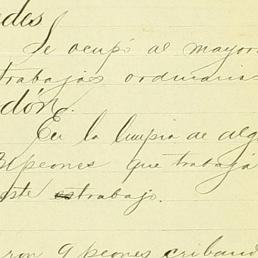 des
Se ocupó al mayor
trabajos ordinaris
dón.
En la limpia de alg
31 peones que trabaja
este trabajo.
ron 9 peones criband